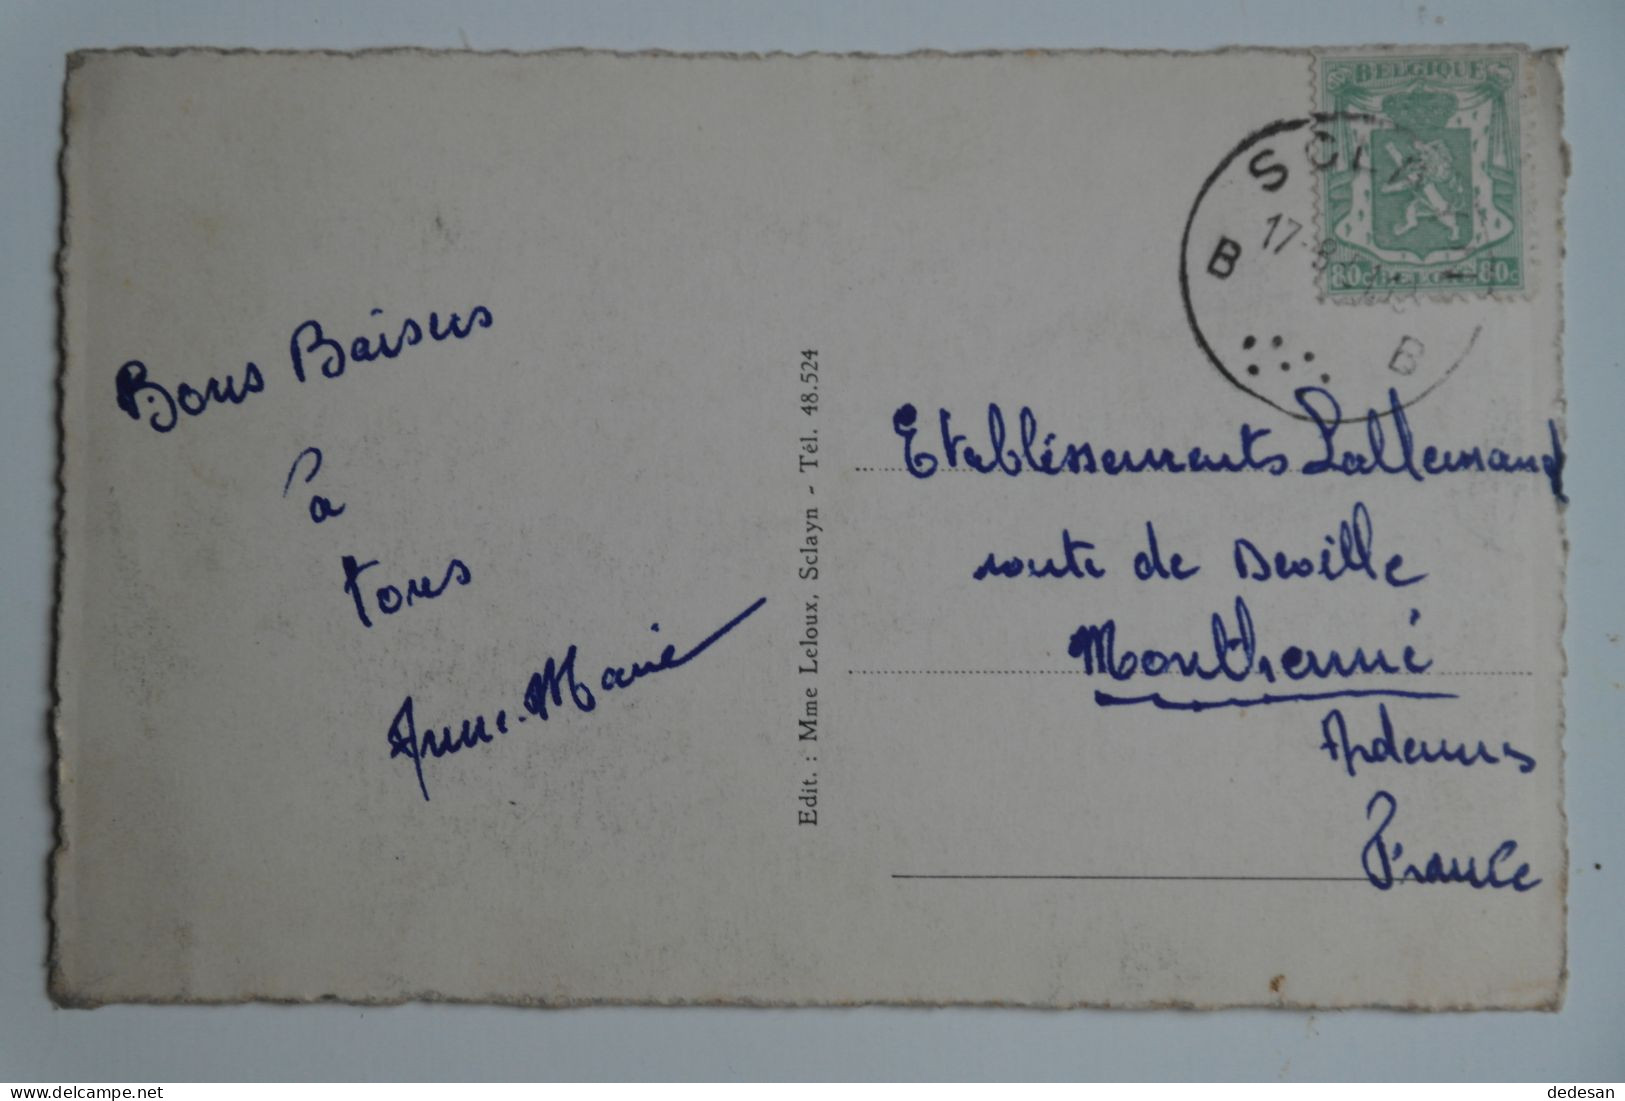 Bons Baisers
à
tous
Anne-Marie
Edit. : Mme Leloux, Sclayn - Tél. 48.524
BELGIQUE
80c BELGIE 80c
17-8
B
B
Etablissements Lallemand
route de Deville
Monthermé
Ardennes
France
dedesan